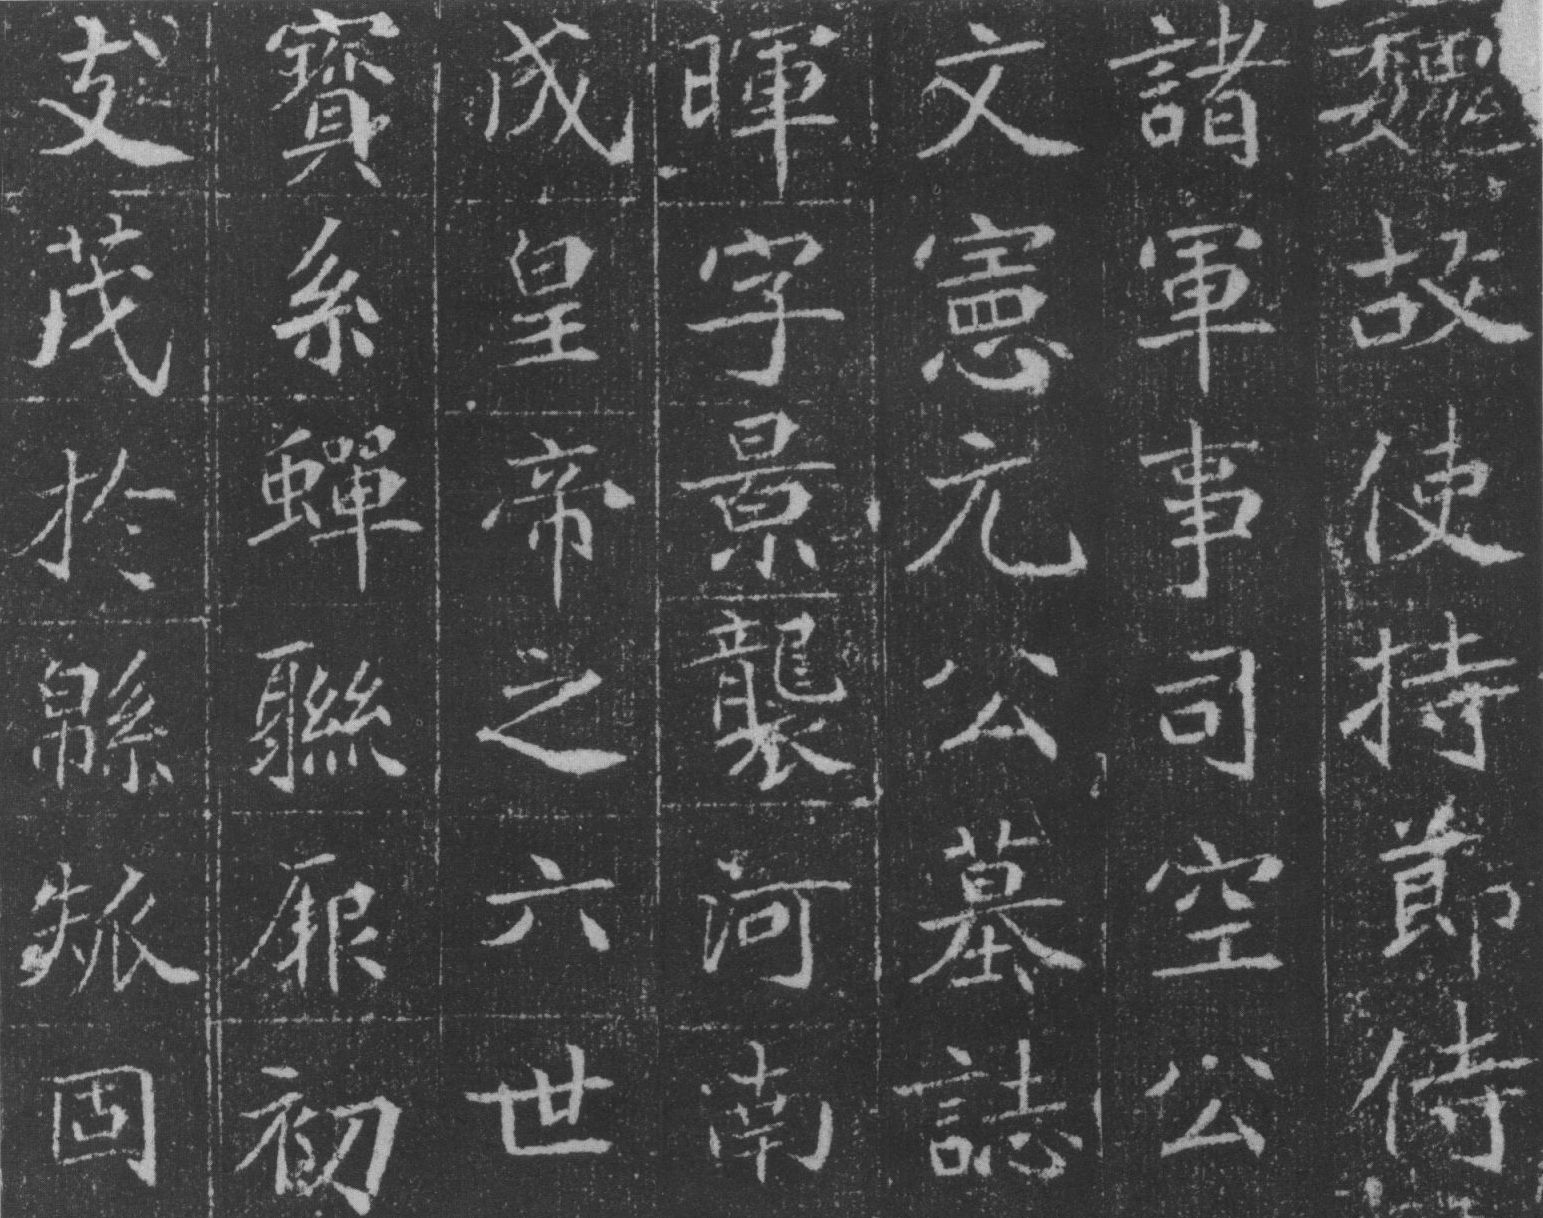 魏故使持節侍
諸軍事司空公
文憲元公墓誌
暉字景襲河南
成皇帝之六世
寶系蟬聯厥初
支茂於緜瓞固